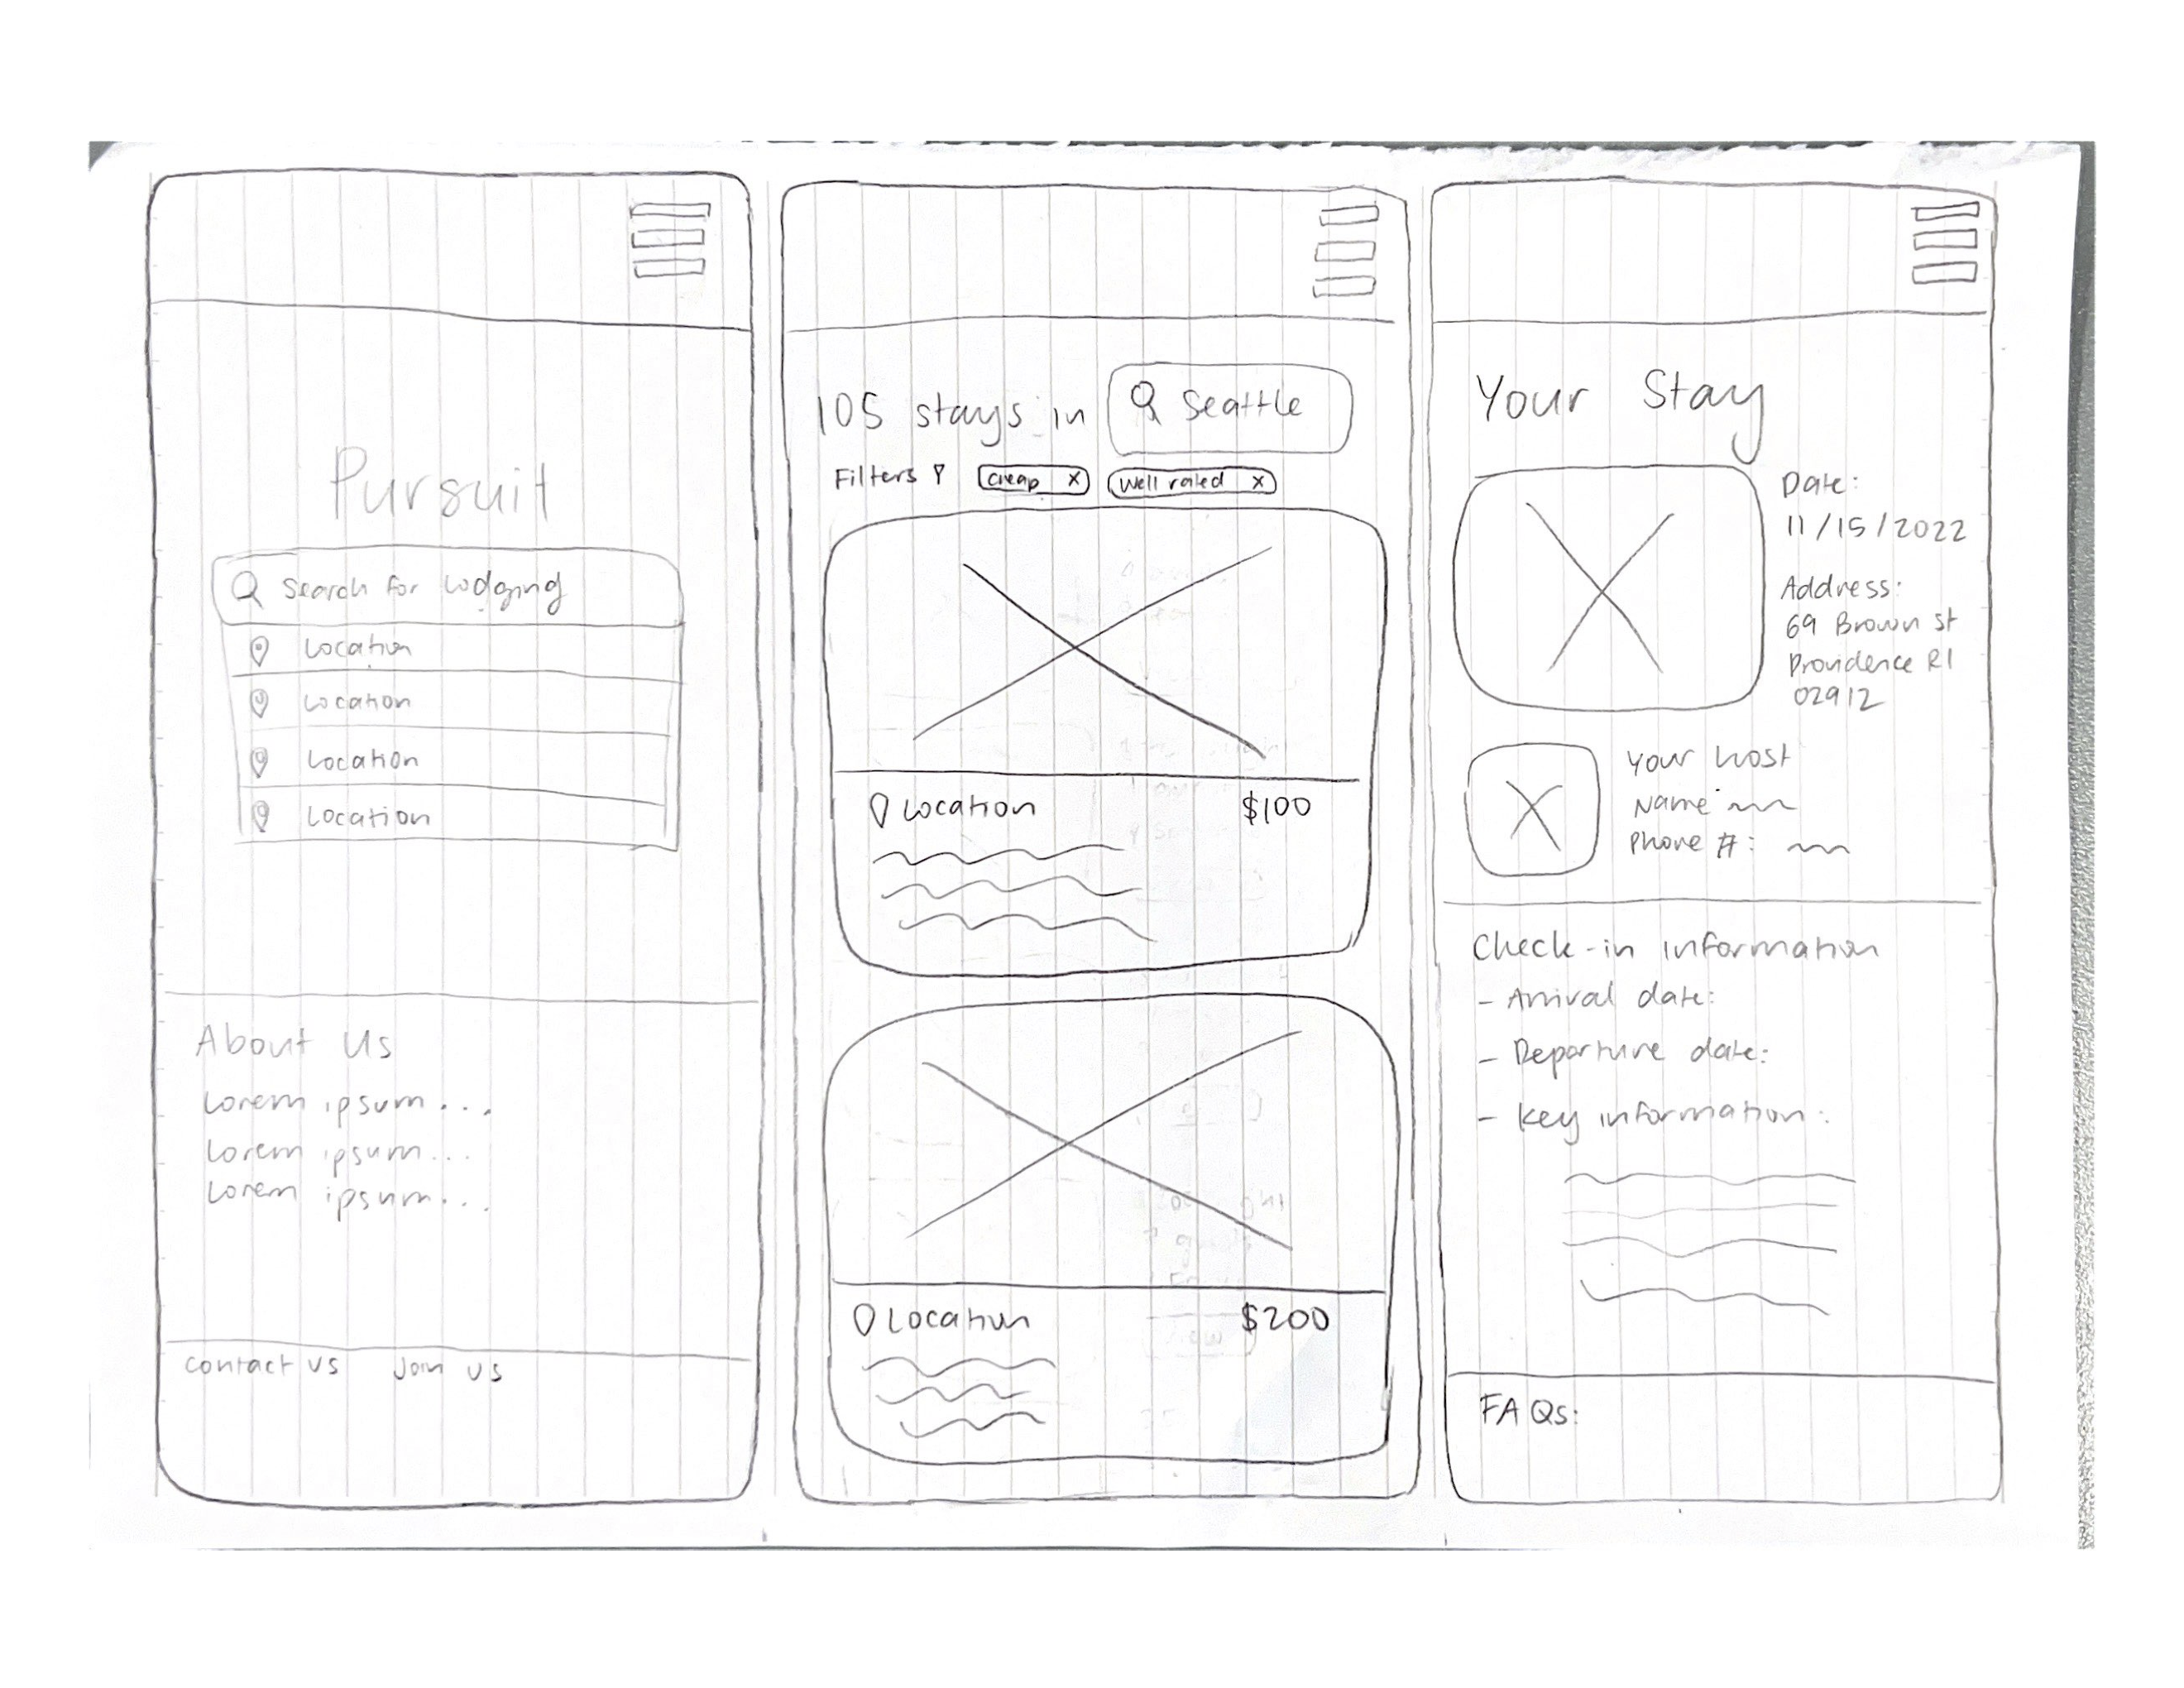 Pursuit
Search for lodging
Location
Location
Location
Location
About Us
Lorem ipsum...
Lorem ipsum...
Lorem ipsum...
Contact us Join us
105 stays in Seattle
Filters Cheap x Well rated x
Location $100
Location $200
Your Stay
Date:
11/15/2022
Address:
69 Brown st
Providence RI
02912
Your host
Name
Phone #:
Check-in information
- Arrival date:
- Departure date:
- Key information:
FAQs: